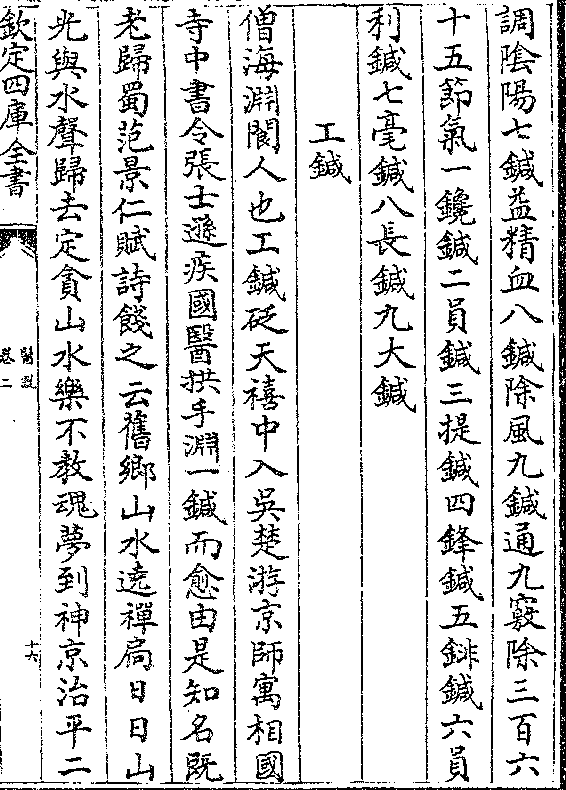 調陰陽七鍼益精血八鍼除風九鍼通九竅除三百六
十五節氣一鑱鍼二員鍼三提鍼四鋒鍼五鈹鍼六員
利鍼七毫鍼八長鍼九大鍼
工鍼
僧海淵閬人也工鍼砭天禧中入吳楚游京師寓相國
寺中書令張士遜疾國醫拱手淵一鍼而愈由是知名既
老歸蜀范景仁賦詩餞之云舊鄉山水遶禪扃日日山
光與水聲歸去定貪山水樂不教魂夢到神京治平二
欽定四庫全書
醫說
卷二
十六